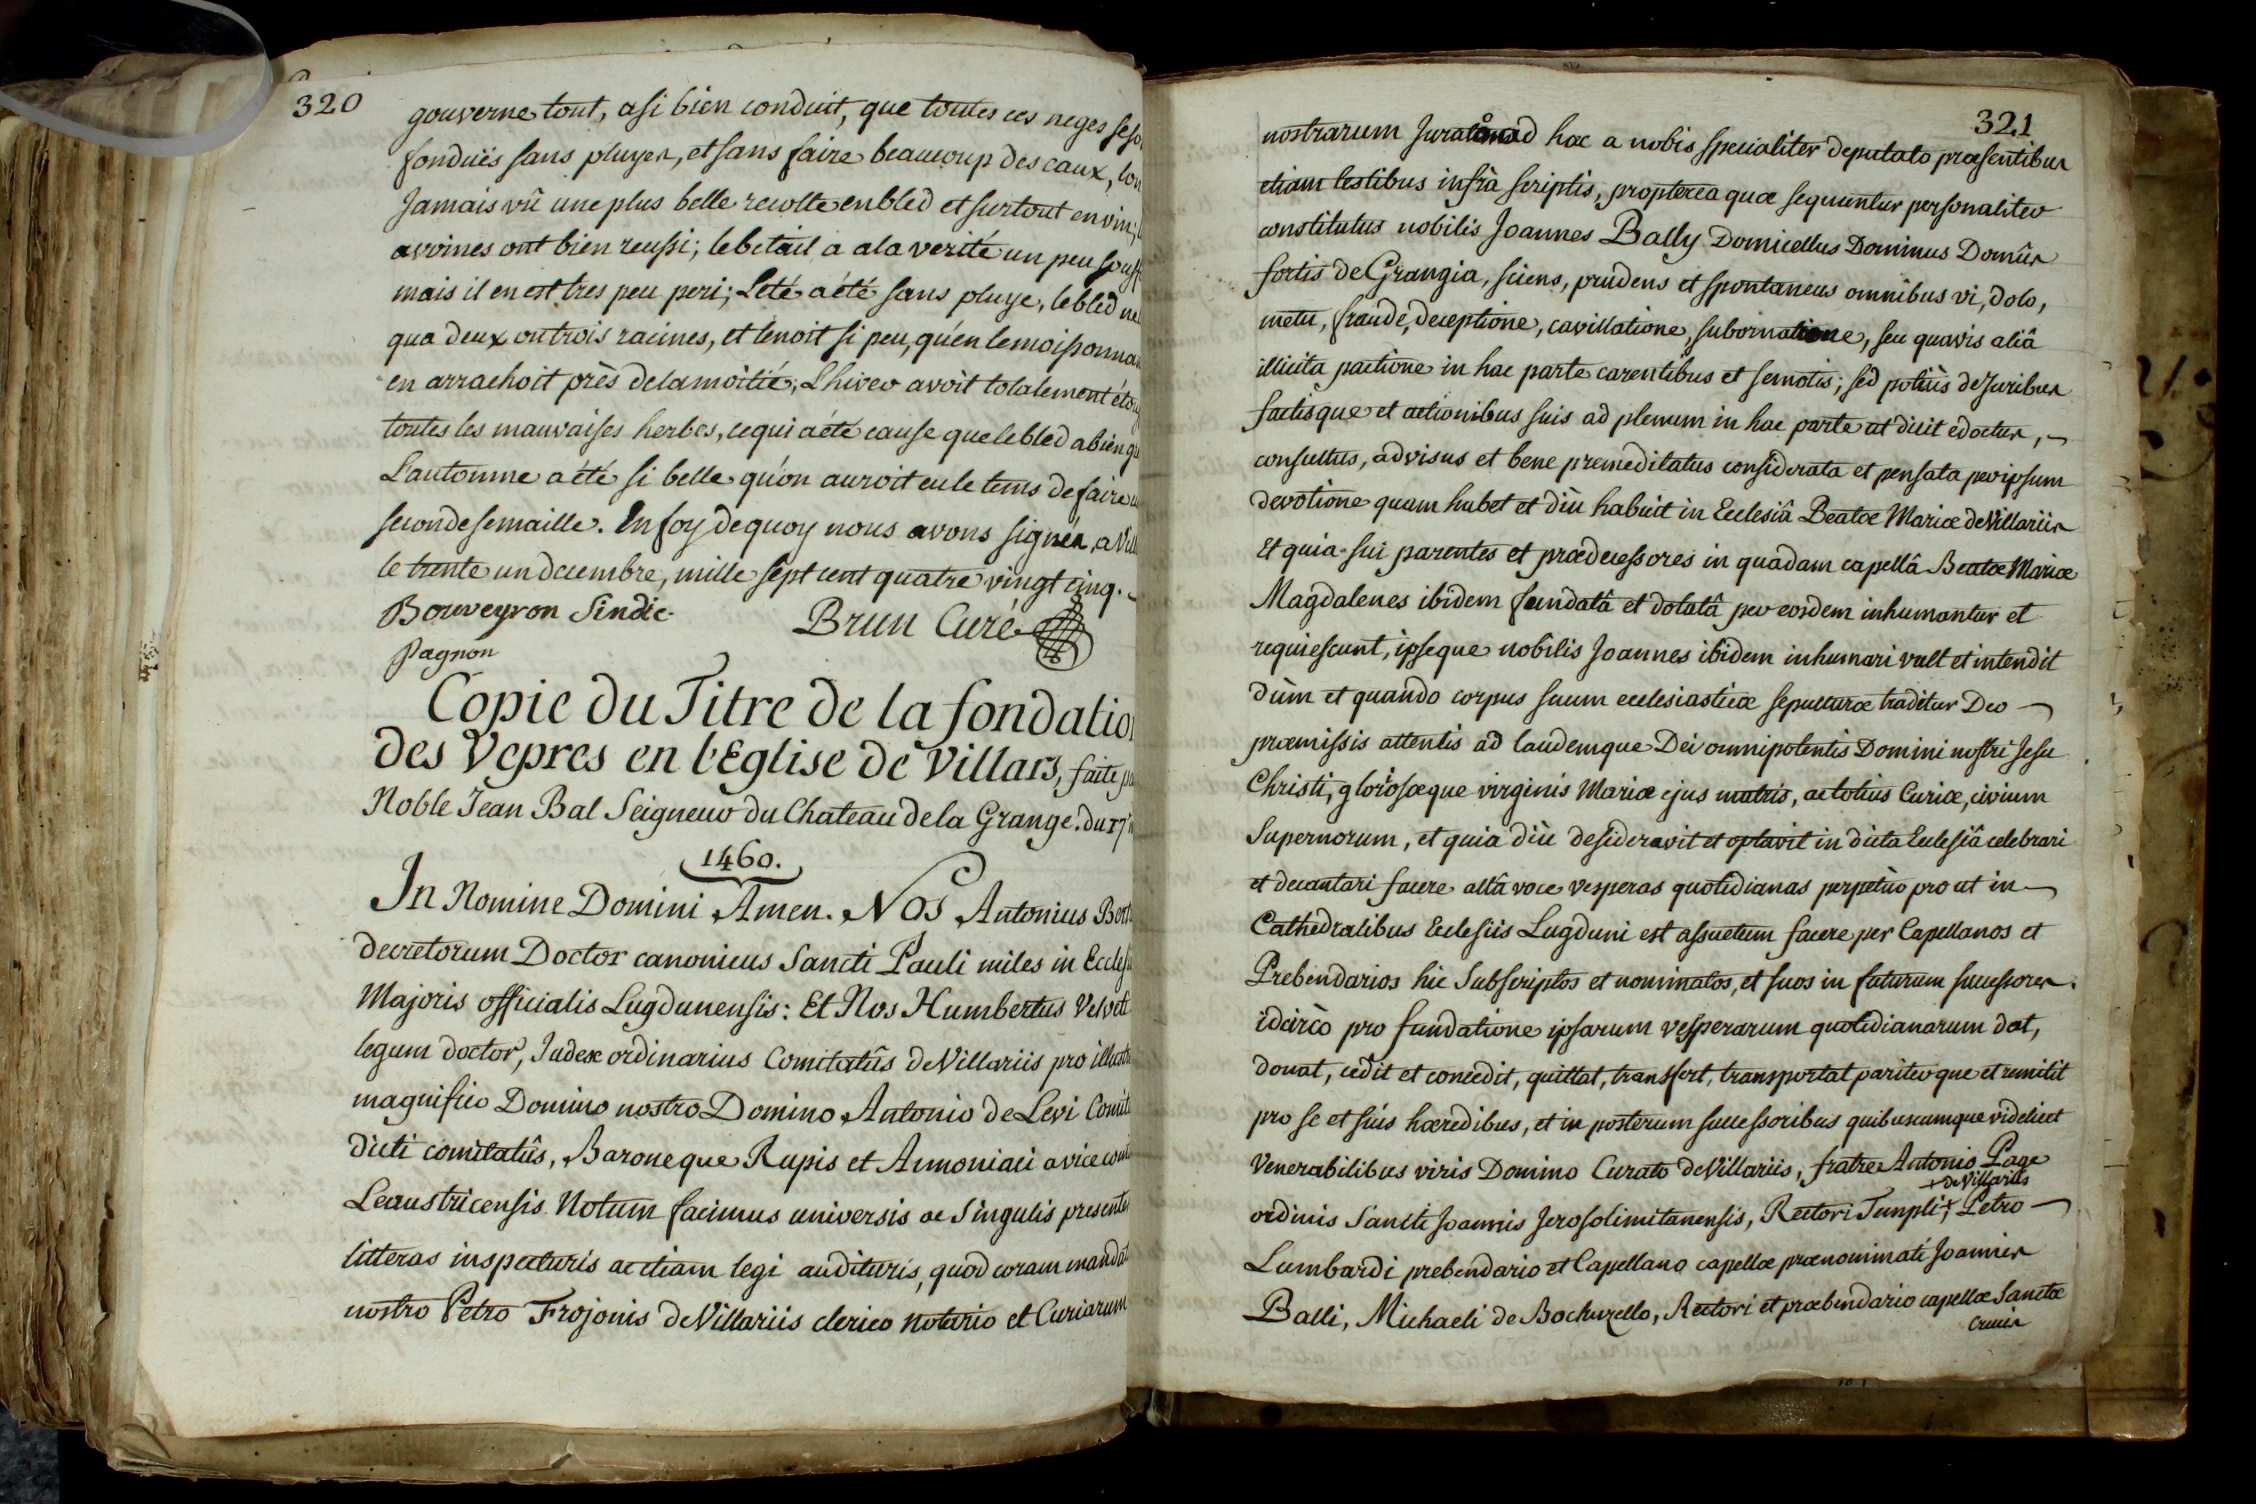 320
gouverne tout, a si bien conduit, que toutes ces neges se so
fonduës sans pluyes, et sans faire beaucoup des eaux, lon
Jamais vû une plus belle recolte en bled et surtout en vin;
avoines ont bien reussi; le betail a a la verité un peu souff
mais il en est tres peu peri; Leté a été sans pluye, le bled ne
qua deux ou trois racines, et tenoit si peu, qu'en le moissonnan
en arrachoit près de la moitié; L'hiver avoit totalement éto
toutes les mauvaises herbes, ce qui a été cause que le bled a bien g
L'automne a été si belle qu'on auroit eu le tems de faire u
seconde semaille. En foy de quoy nous avons signés, a Vill
le trente un decembre, mille sept cent quatre vingt cinq.
Bouveyron Sindic. Brun Curé
Pagnon
Copie du Titre de la fondatio
des Vepres en l'Eglise de Villars, faite pa
Noble Jean Bal Seigneur du Chateau de la Grange. du 17
1460.
In Nomine Domini Amen. Nos Antonius Bert
decretorum Doctor canonicus Sancti Pauli miles in Ecclesi
Majoris officialis Lugdunensis: Et Nos Humbertus Velveti
legum doctor, Judex ordinarius Comitatûs de Villariis pro illust
magnifico Domino nostro Domino Antonio de Levi Comit
dicti comitatûs, Baroneque Rupis et Annoniaci a vice comit
Leaustricensis. Notum facimus universis ac Singulis presente
litteras inspecturis ac etiam legi audituris, quod coram mandat
nostro Petro Frojonis de Villariis clerico notario et Curiarum
321
nostrarum Jurato ad hoc a nobis specialiter deputato præsentibus
etiam testibus infrà scriptis, propterea quæ sequuntur personaliter
constitutus nobilis Joannes Bally Domicellus Dominus Domûs
fortis de Grangia, sciens, prudens et spontaneus omnibus vi, dolo,
metu, fraude, deceptione, cavillatione, subornatione, seu quavis aliâ
illicita pactione in hac parte carentibus et semotis; sed potiùs de Juribus
factisque et actionibus suis ad plenum in hac parte ut dicit edoctus,
consultus, advisus et bene premeditatus considerata et pensata per ipsum
devotione quam habet et diù habuit in Ecclesiâ Beatæ Mariæ de Villariis
Et quia sui parentes et prædecessores in quadam capellâ Beatæ Mariæ
Magdalenes ibidem fundatâ et dotatâ per eosdem inhumantur et
requiescunt, ipseque nobilis Joannes ibidem inhumari vult et intendit
dùm et quando corpus suum ecclesiasticæ sepulturæ traditur Deo
præmissis attentis ad laudemque Dei omnipotentis Domini nostri Jesu
Christi, gloriosæque virginis Mariæ ejus matris, ac totius Curiæ, civium
Supernorum, et quia diù desideravit et optavit in dicta Ecclesiâ celebrari
et decantari facere altâ voce vesperas quotidianas perpetùo prout in
Cathedralibus Ecclesiis Lugduni est assuetum facere per Capellanos et
Prebendarios hic Subscriptos et nominatos, et suos in futurum successores.
idcircò pro fundatione ipsarum vesperarum quotidianarum dat,
donat, cedit et concedit, quittat, transfert, transportat pariterque et remitit
pro se et suis hæredibus, et in posterum successoribus quibuscumque videlicet
Venerabilibus viris Domino Curato de Villariis, fratre Antonio Page
+ de Villariis
ordinis Sancti Joannis Jerosolimitanensis, Rectori Templi+, Petro
Lumbardi prebendario et Capellano capellæ prænominati Joannis
Balli, Michaeli de Bochuzello, Rectori et præbendario capellæ Sanctæ
Crucis